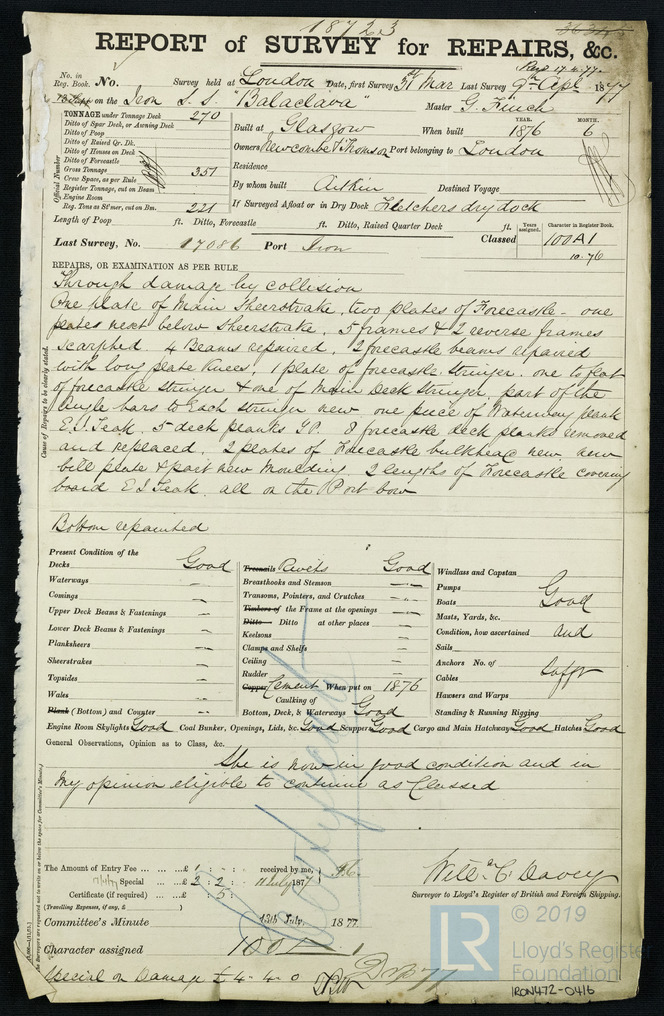 18723
REPORT of SURVEY for REPAIRS, &c.
No. in Reg. Book. No. Survey held at London Date, first Survey 31st Mar Last Survey 9th Apl. 1877
on the Iron S.S. "Balaclava" Master G. Finch
TONNAGE under Tonnage Deck 270
Ditto of Spar Deck, or Awning Deck
Ditto of Poop
Ditto of Raised Qr. Dk.
Ditto of Houses on Deck
Ditto of Forecastle
Gross Tonnage 351
Crew Space, as per Rule
Register Tonnage, cut on Beam
Engine Room
Reg. Tons as St'mer, cut on Bm. 221
Official Number
Built at Glasgow When built YEAR. 1876 MONTH. 6
Owners Newcombe & Thomson Port belonging to London
Residence
By whom built Aitkin Destined Voyage
If Surveyed Afloat or in Dry Dock Fletchers dry dock
Length of Poop ft. Ditto, Forecastle ft. Ditto, Raised Quarter Deck ft.
Years assigned. Character in Register Book.
Last Survey, No. 17086 Port Iron Classed 100A1
10.76
REPAIRS, OR EXAMINATION AS PER RULE
Cause of Repairs to be clearly stated.
Through damage by collision
One plate of Main Sheerstrake, two plates of Forecastle - one
plates next below Sheerstrake, 5 frames & 2 reverse frames
scarphed. 4 Beams repaired, 2 forecastle beams repaired
with long plate knees, 1 plate of forecastle stringer, one to flat
of forecastle stringer & one of Main Deck Stringer, part of the
angle bars to Each stringer new one piece of Waterway plank
E.I. Teak. 5 deck planks Y.P. 8 forecastle deck planks removed
and replaced. 2 plates of Forecastle bulkhead new. new
bill plate & part new Moulding, 2 lengths of Forecastle covering
board E I Teak. all on the Port bow
Bottom repainted
Present Condition of the
Decks Good
Waterways –
Comings –
Upper Deck Beams & Fastenings –
Lower Deck Beams & Fastenings –
Planksheers –
Sheerstrakes –
Topsides –
Wales –
Plank (Bottom) and Counter –
Treenails Rivets Good
Breasthooks and Stemson
Transoms, Pointers, and Crutches
Timbers of the Frame at the openings
Ditto Ditto at other places
Keelsons
Clamps and Shelfs
Ceiling
Rudder
Copper Cement When put on 1876
Caulking of
Bottom, Deck, & Waterways Good
Windlass and Capstan
Pumps
Boats Good
Masts, Yards, &c.
Condition, how ascertained and
Sails
Anchors No. of
Cables Sufft
Hawsers and Warps
Standing & Running Rigging
Engine Room Skylights Good Coal Bunker, Openings, Lids, &c. Good Scuppers Good Cargo and Main Hatchway Good Hatches Good
General Observations, Opinion as to Class, &c.
She is now in good condition and in
My opinion eligible to continue as Classed
The Amount of Entry Fee ... £ 1 : : received by me,
Special ... £ 2 : 2 : 11 July 1877
Certificate (if required) ... £ : 5 :
(Travelling Expenses, if any, £ )
Willm C Davey
Surveyor to Lloyd's Register of British and Foreign Shipping.
Committee's Minute 13th July. 1877
Character assigned 100A1
Special on Damage £ 4-4-0
© 2019
LR Lloyd's Register Foundation
IRON472-0416